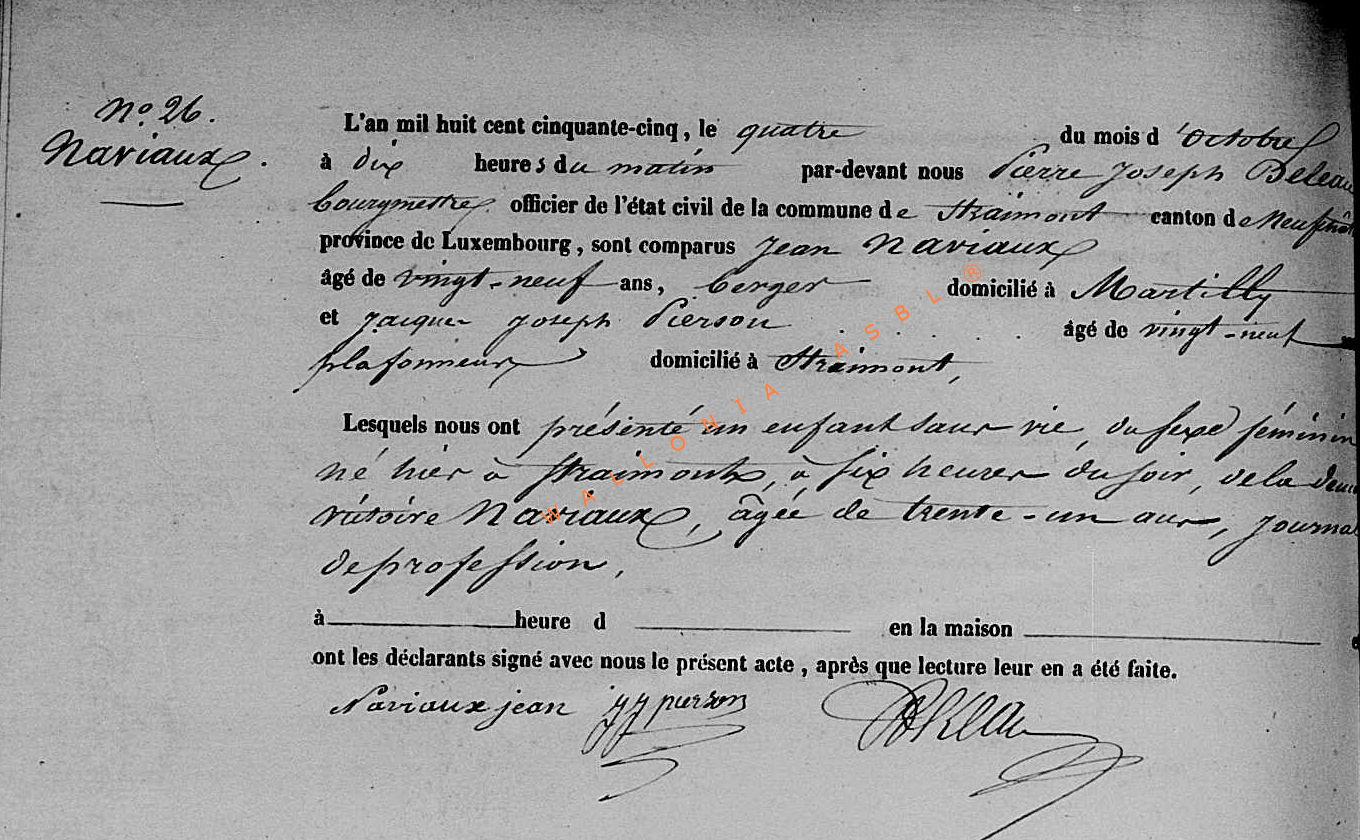 No. 26.
Naviaux.
L'an mil huit cent cinquante-cinq, le quatre du mois d'octobre
à dix heures du matin par-devant nous Pierre Joseph
bourgmestre officier de l'état civil de la commune de Straimont canton de
province de Luxembourg, sont comparus Jean Naviaux
âgé de vingt-neuf ans, berger domicilié à Martilly
et Jacques Joseph Pierson . . . . âgé de vingt-neuf
plafonneur domicilié à Straimont,
Lesquels nous ont présenté un enfant sans vie, du sexe féminin
né hier à Straimont, à six heures du soir, de la
Victoire Naviaux, âgée de trente-un ans,
de profession,
à heure d en la maison
ont les déclarants signé avec nous le présent acte, après que lecture leur en a été faite.
Naviaux jean jj pierson
WALLONIA ASBL ®